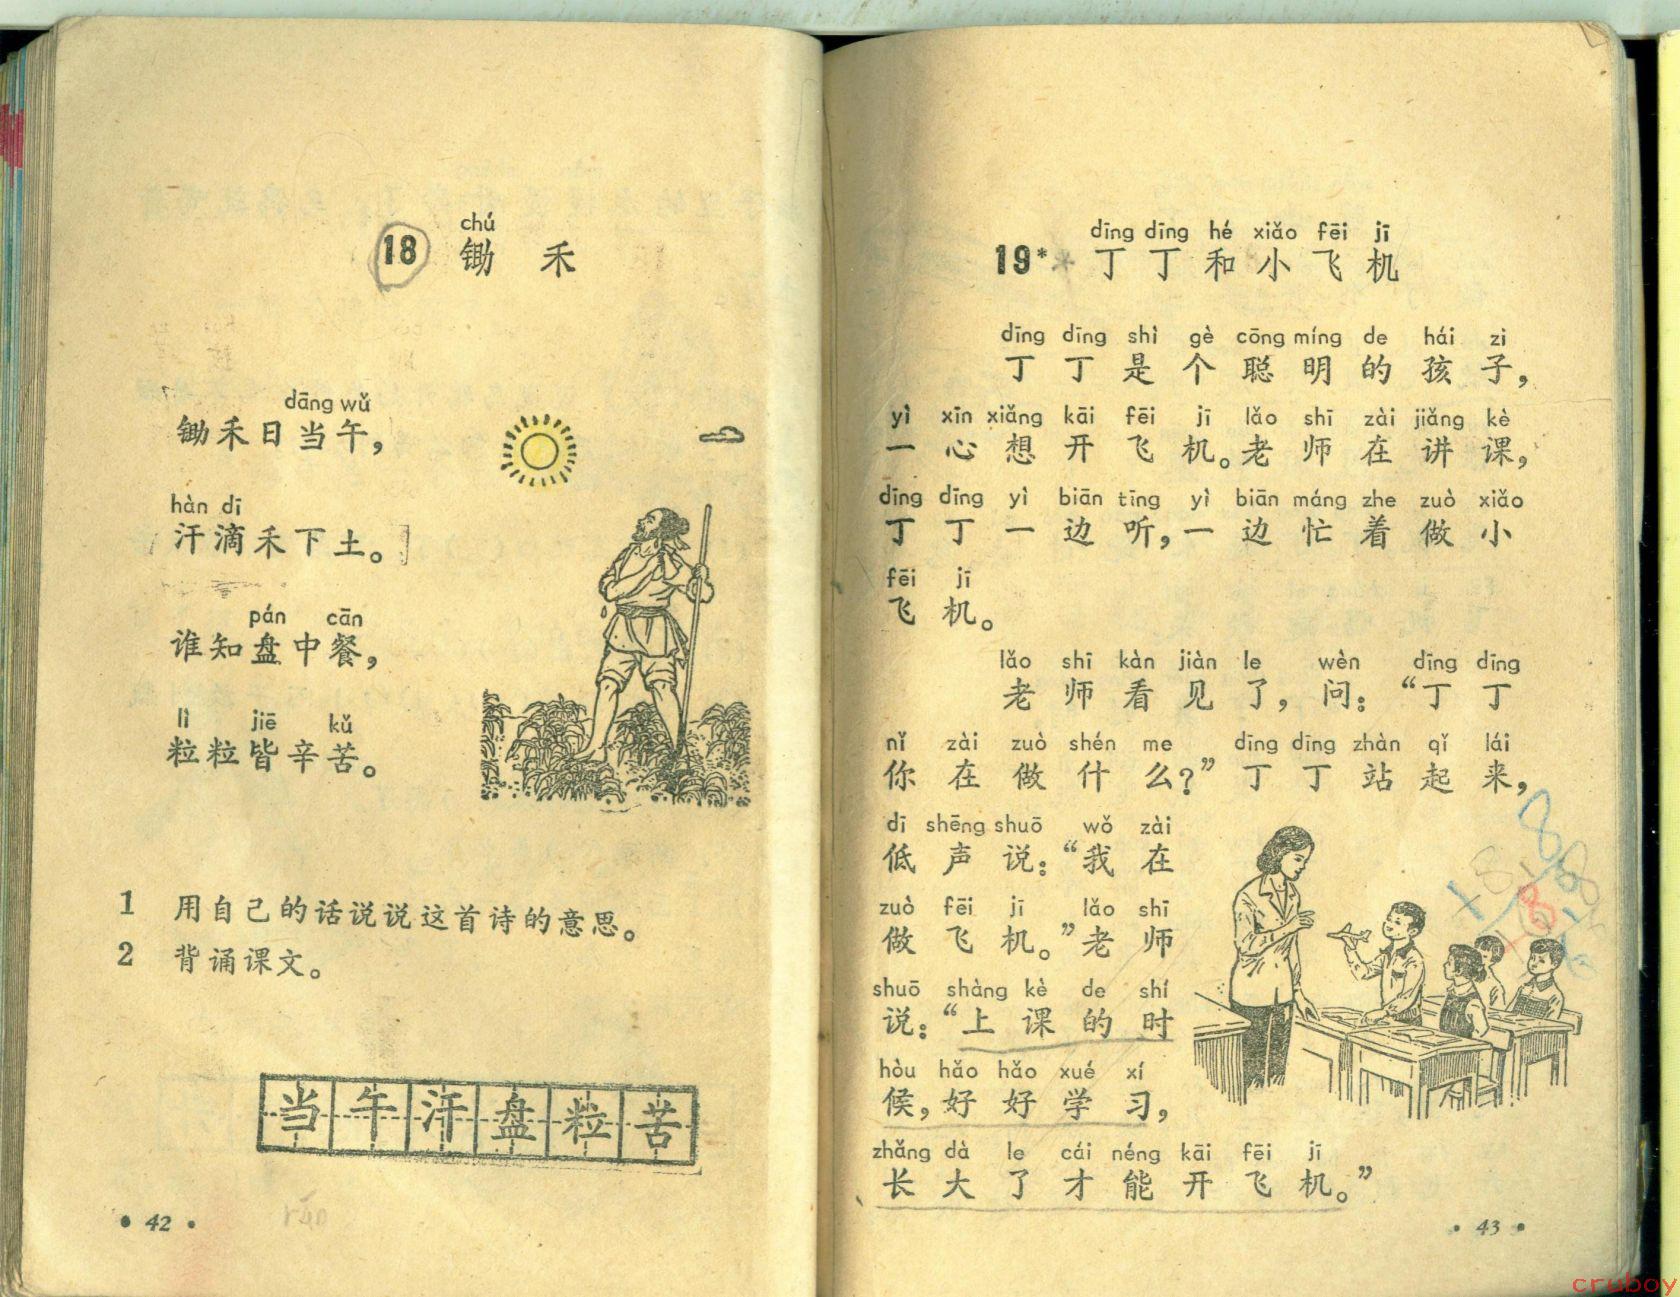 chú
18 锄 禾
dāng wǔ
锄禾日当午，
hàn dī
汗滴禾下土。
pán cān
谁知盘中餐，
lì jiē kǔ
粒粒皆辛苦。
1 用自己的话说说这首诗的意思。
2 背诵课文。
当 午 汗 盘 粒 苦
• 42 •
dīng dīng hé xiǎo fēi jī
19* 丁 丁 和 小 飞 机
dīng dīng shì gè cōng míng de hái zi
丁 丁 是 个 聪 明 的 孩 子，
yì xīn xiǎng kāi fēi jī lǎo shī zài jiǎng kè
一 心 想 开 飞 机。老 师 在 讲 课，
dīng dīng yì biān tīng yì biān máng zhe zuò xiǎo
丁 丁 一 边 听，一 边 忙 着 做 小
fēi jī
飞 机。
lǎo shī kàn jiàn le wèn dīng dīng
老 师 看 见 了，问：“丁 丁
nǐ zài zuò shén me dīng dīng zhàn qǐ lái
你 在 做 什 么？”丁 丁 站 起 来，
dī shēng shuō wǒ zài
低 声 说：“我 在
zuò fēi jī lǎo shī
做 飞 机。”老 师
shuō shàng kè de shí
说：“上 课 的 时
hòu hǎo hǎo xué xí
候，好 好 学 习，
zhǎng dà le cái néng kāi fēi jī
长 大 了 才 能 开 飞 机。”
• 43 •
cruboy